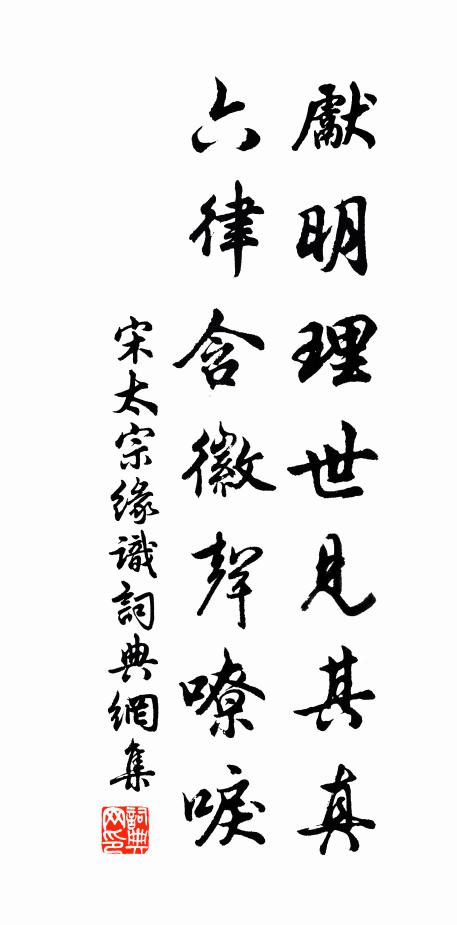 獻明理世見其真
六律含徽聲嘹唳
宋太宗緣識詞典網集
詞典网印